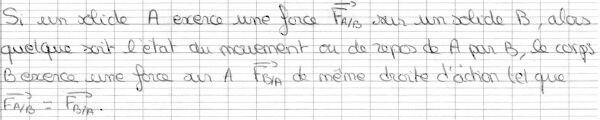 Si un solide A exerce une force F→A/B sur un solide B, alors
quelque soit l'état du mouvement ou de repos de A par B, le corps
B exerce une force sur A F→B/A de même droite d'action tel que
F→A/B = F→B/A.